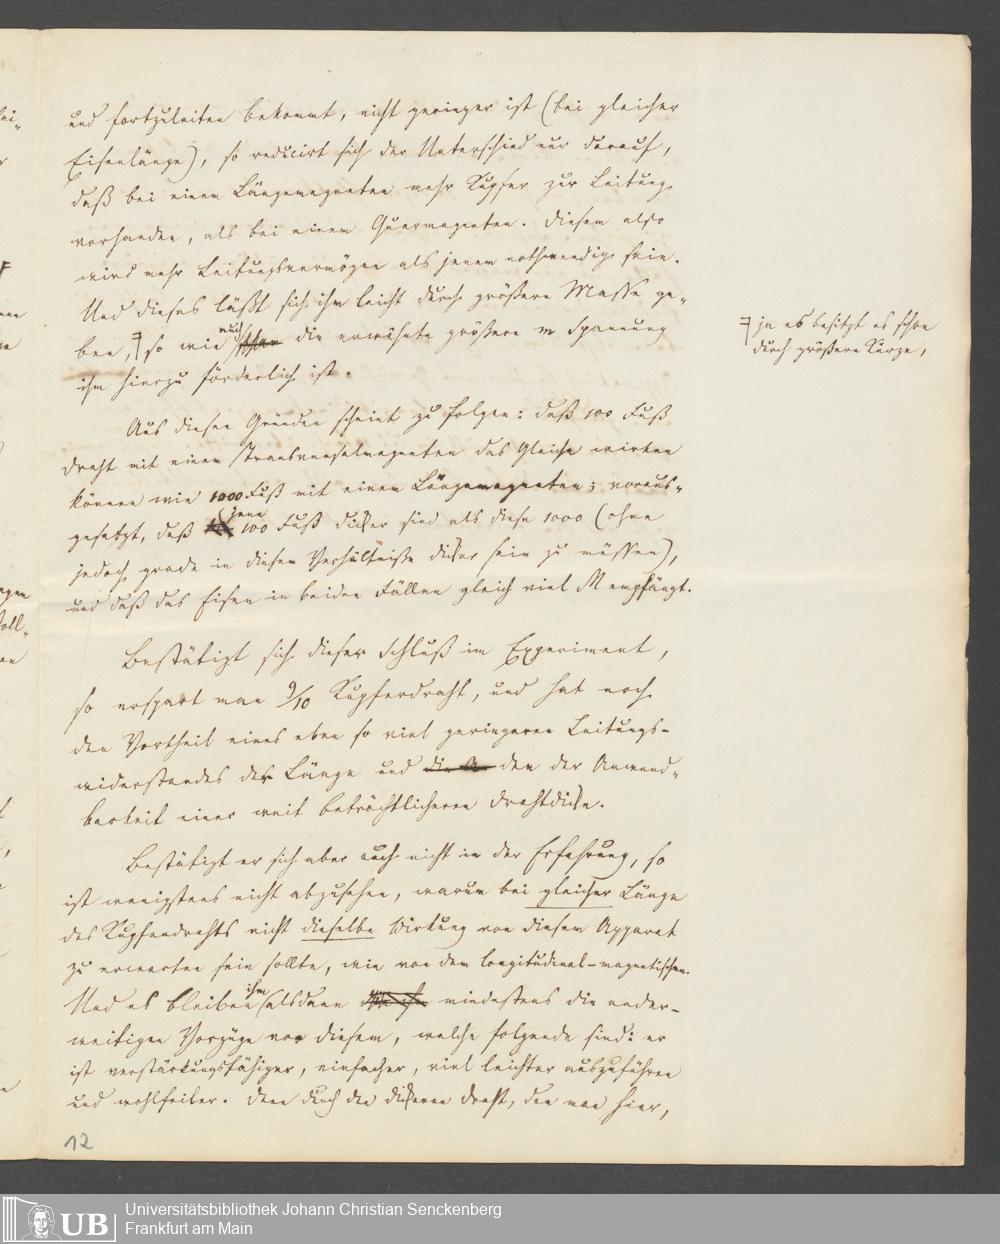 und fortzuleiten bekommt, nicht geringer ist (bei gleicher
Eisenlänge), so reducirt sich der Unterschied nur darauf,
daß bei einem Längemagneten mehr Kupfer zur Leitung
vorhanden, als bei einem Quermagneten. Diesem also
wird mehr Leitungsvermögen als jenem nothwendig sein.
Und dieses läßt sich ihm leicht durch größere Masse ge-
ben, so wie auch die erwähnte größere Spannung
ja es besitzt es schon
durch größere Kürze,
ihm hierzu förderlich ist.
Aus diesen Gründen scheint zu folgen: daß 100 Fuß
Draht mit einem Transversalmagneten das Gleiche wirken
können wie 1000 Fuß mit einem Längemagneten; voraus-
gesetzt, daß jene 100 Fuß dicker sind als diese 1000 (ohne
jedoch grade in diesem Verhältnisse dicker sein zu müssen),
und daß das Eisen in beiden Fällen gleich viel M empfängt.
Bestätigt sich dieser Schluß im Experiment,
so erspart man 9/10 Kupferdraht, und hat noch
den Vortheil eines eben so viel geringeren Leitungs-
widerstandes der Länge und den der Anwend-
barkeit einer weit beträchtlicheren Drahtdicke.
Bestätigt er sich aber auch nicht in der Erfahrung, so
ist wenigstens nicht abzusehen, warum bei gleicher Länge
des Kupferdrahts nicht dieselbe Wirkung von diesem Apparat
zu erwarten sein sollte, wie von dem longitudinal-magnetischen.
Und es bleiben ihm alsdann mindestens die ander-
weitigen Vorzüge vor diesem, welche folgende sind: er
ist verstärkungsfähiger, einfacher, viel leichter auszuführen
und wohlfeiler. Denn durch den dickeren Draht, den man hier,
12
UB
Universitätsbibliothek Johann Christian Senckenberg
Frankfurt am Main